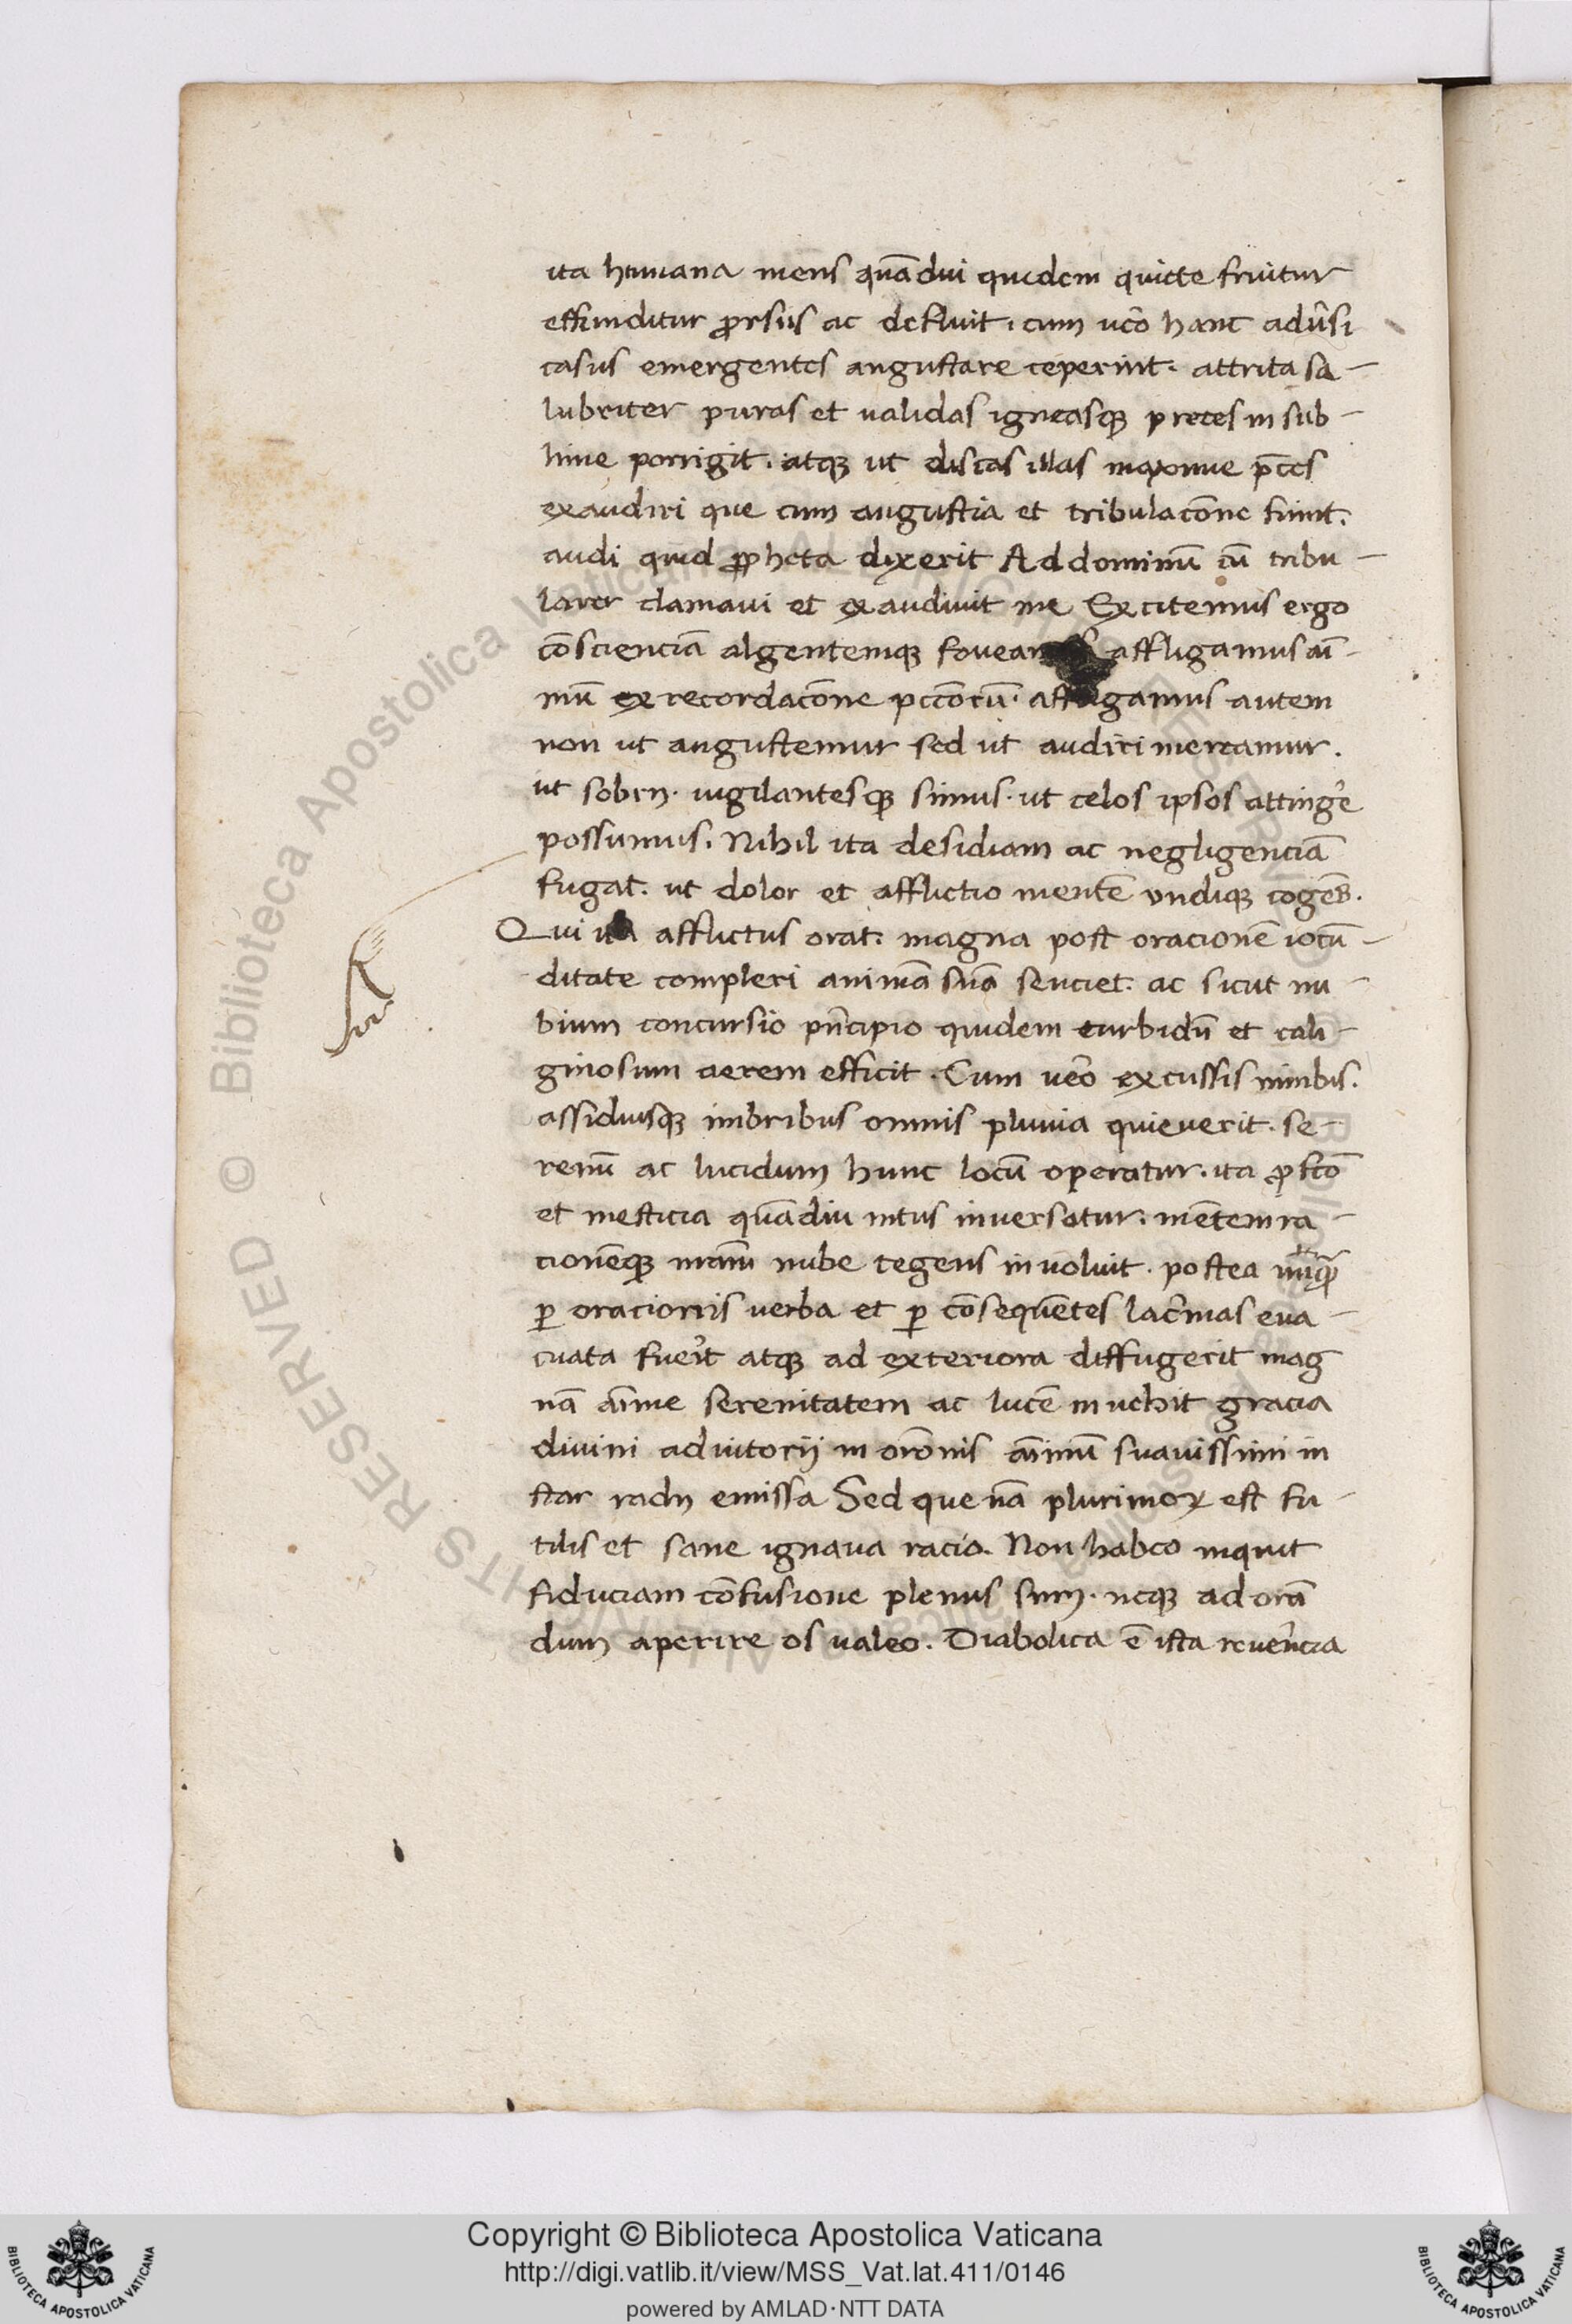 ita humana mens quādiu quidem quiete fruitur
effunditur ꝓrsus ac defluit. cum uc̄o hanc adūsi
casus emergentes angustare ceperint. attrita sa-
lubriter puras et validas igneasqꝫ preces in sub-
lime porrigit. atqꝫ ut discas illas maxime p̄ces
exaudiri que cum angustia et tribulacōne fiunt.
audi quid ꝓpheta dixerit Ad dominū cū tribu-
larer clamaui et exaudiuit me Excitemus ergo
cōscienciā algentemqꝫ affligamus ai-
mū ex recordacōne pccōrū. affligamus autem
non ut angustemur sed ut audiri mereamur.
ut sobrij. uigilantesqꝫ simus. ut celos ipsos attinge᷑
possumus. Nihil ita desidiam ac negligenciā
fugat. ut dolor et afflictio mentē vndiqꝫ cogēs.
Qui ita afflictus orat. magna post oracionē iocū-
ditate compleri animā suā senciet. ac sicut nu-
bium concursio pn̄cipio quidem turbidū et cali-
ginosum aerem efficit. Cum ue᷑o excussis nimbis.
assiduisqꝫ imbribus omnis pluuia quieuerit. se-
renū ac lucidum hunc locū operatur. ita ꝓfcō
et mesticia quādiu intus inuersatur. mētem ra-
cionēqꝫ nube tegens inuoluit. postea
ꝑ oracionis verba et ꝑ cōsequētes lac᷑mas eua-
cuata fue᷑it atqꝫ ad exteriora diffugerit mag
nā aīme serenitatem ac lucē inuehit gracia
diuini adiutorij in orōnis aīmū suauissimi in
star radij emissa Sed que nā plurimoꝝ est fu-
tilis et sane ignaua racio. Non habeo inquit
fiduciam cōfusione plenus sum. neqꝫ ad orā
dum aperire os valeo. Diabolica ē ista reue᷑ncia
Copyright © Biblioteca Apostolica Vaticana
http://digi.vatlib.it/view/MSS_Vat.lat.411/0146
powered by AMLAD·NTT DATA